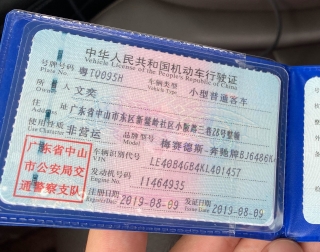 中华人民共和国机动车行驶证
Vehicle License of the People's Republic of China
号牌号码 粤TQ095H 车辆类型 小型普通客车
Plate No. Vehicle Type
所有人 文奕
Owner
住址 广东省中山市东区新鳌岭社区小鳌路三巷28号整幢
Address
使用性质 非营运 品牌型号 梅赛德斯-奔驰牌BJ6486K
Use Character Model
广东省中山
市公安局交
通警察支队
车辆识别代号 LE40B4GB4KL401457
VIN
发动机号码 11464935
Engine No.
注册日期 2019-08-09 发证日期 2019-08-09
Register Date Issue Date